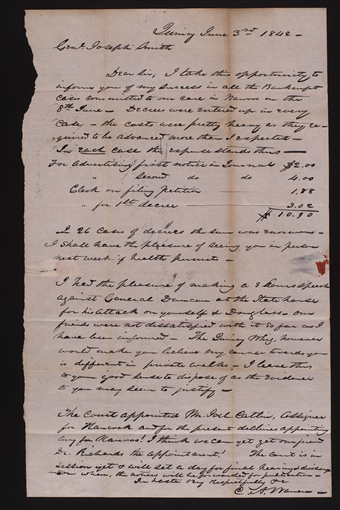 Quincy June 3rd 1842 -
Genl Joseph Smith
Dear Sir, I take this opportunity to
inform you of my success in all the Bankrupt
cases committed to our care in Nauvoo on the
8th June - Decrees were entered up in every
case - the costs were pretty heavy as they re-
quired to be advanced more than I expected -
In each case the expense stands thus -
For Advertising first notice in Journals $2.00
" Second do do 4.00
Clerk on filing petition 1.88
" for 1st decree 3.02
$10.90
In 26 cases of decrees the sum was enormous -
I shall have the pleasure of seeing you in person
next week if health permits -
I had the pleasure of making a 3 hours speech
against General Duncan at the State house
for his attack on yourself & Douglass - Our
friends were not dissatisfied with it so far as I
have been informed - The Quincy Whig, however
would make you believe my course towards you
is different in private walks - I leave this
to your good sense to dispose of as the evidence
to you may seem to justify -
The Court appointed Mr. Catlin, Assignee
for Hancock and for the present declines appointing
any for Nauvoo! I think we can yet get our friend
Dr. Richards the appointment! The Court is in
session yet & will set a day for final hearing & discharge
when, the notices will be for
In haste very respectfully &c
C. A. Warren